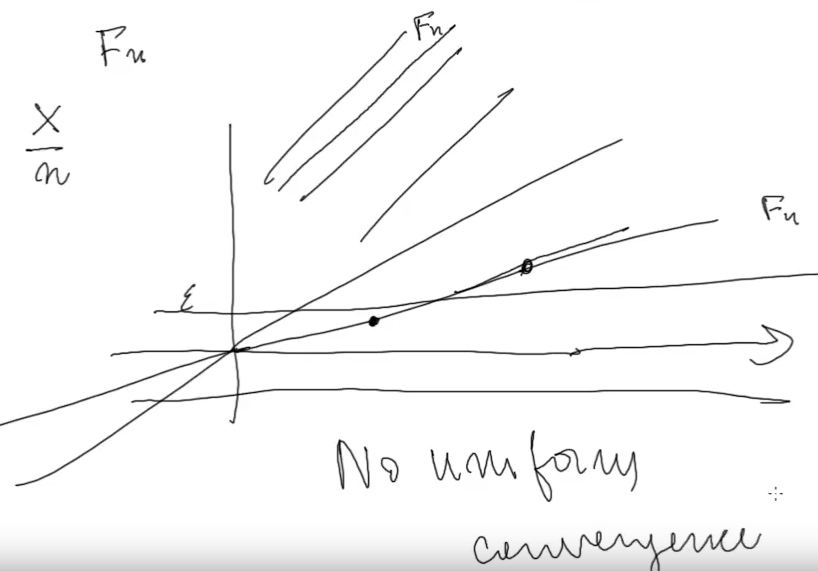 Fn
Fn
x
n
Fn
ε
No uniform
convergence